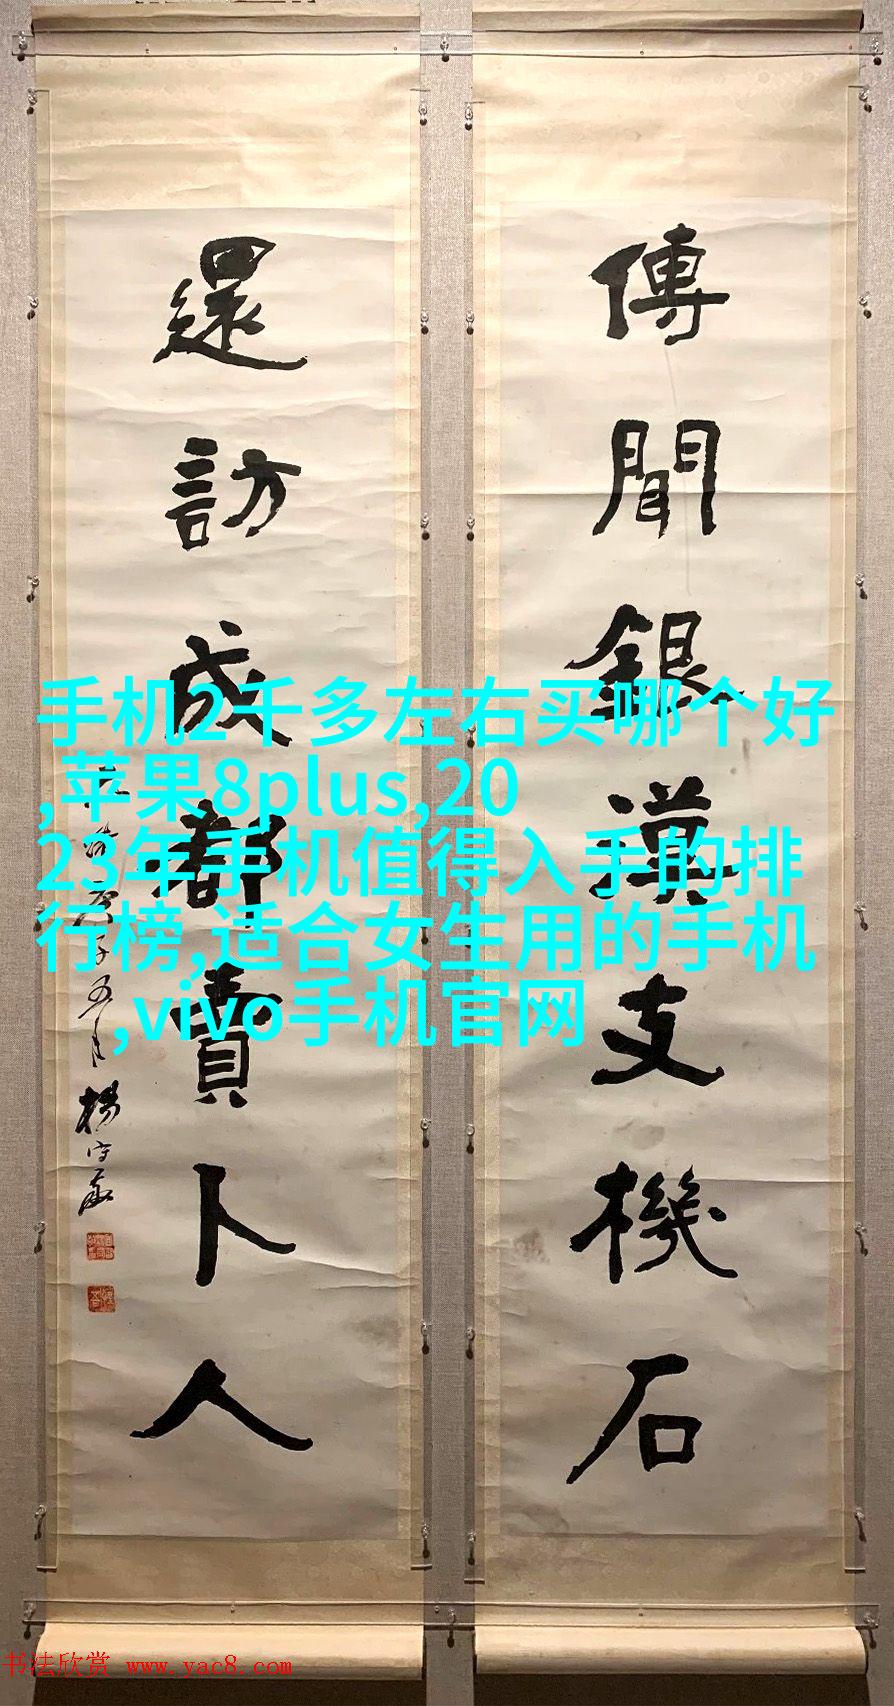 傳聞銀漢支機石
還訪成都賣卜人
楊守敬
手机2千多左右买哪个好
,苹果8plus,20
23年手机值得入手的排
行榜,适合女生用的手机
,vivo手机官网
书法欣赏 www.yac8.com